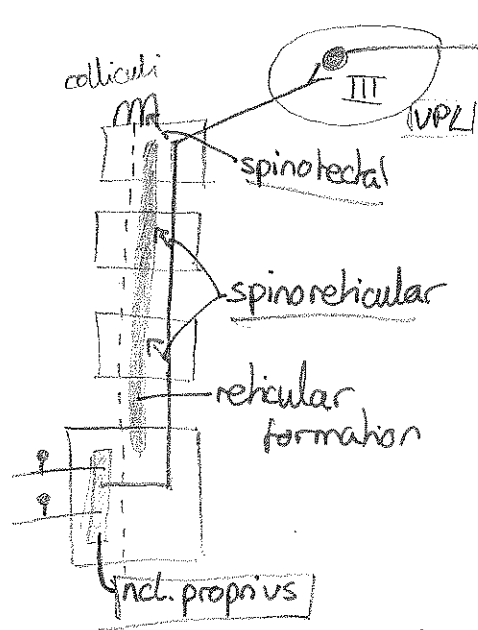 colliculi
III
VPL
spinotectal
spinoreticular
reticular
formation
ncl. proprius